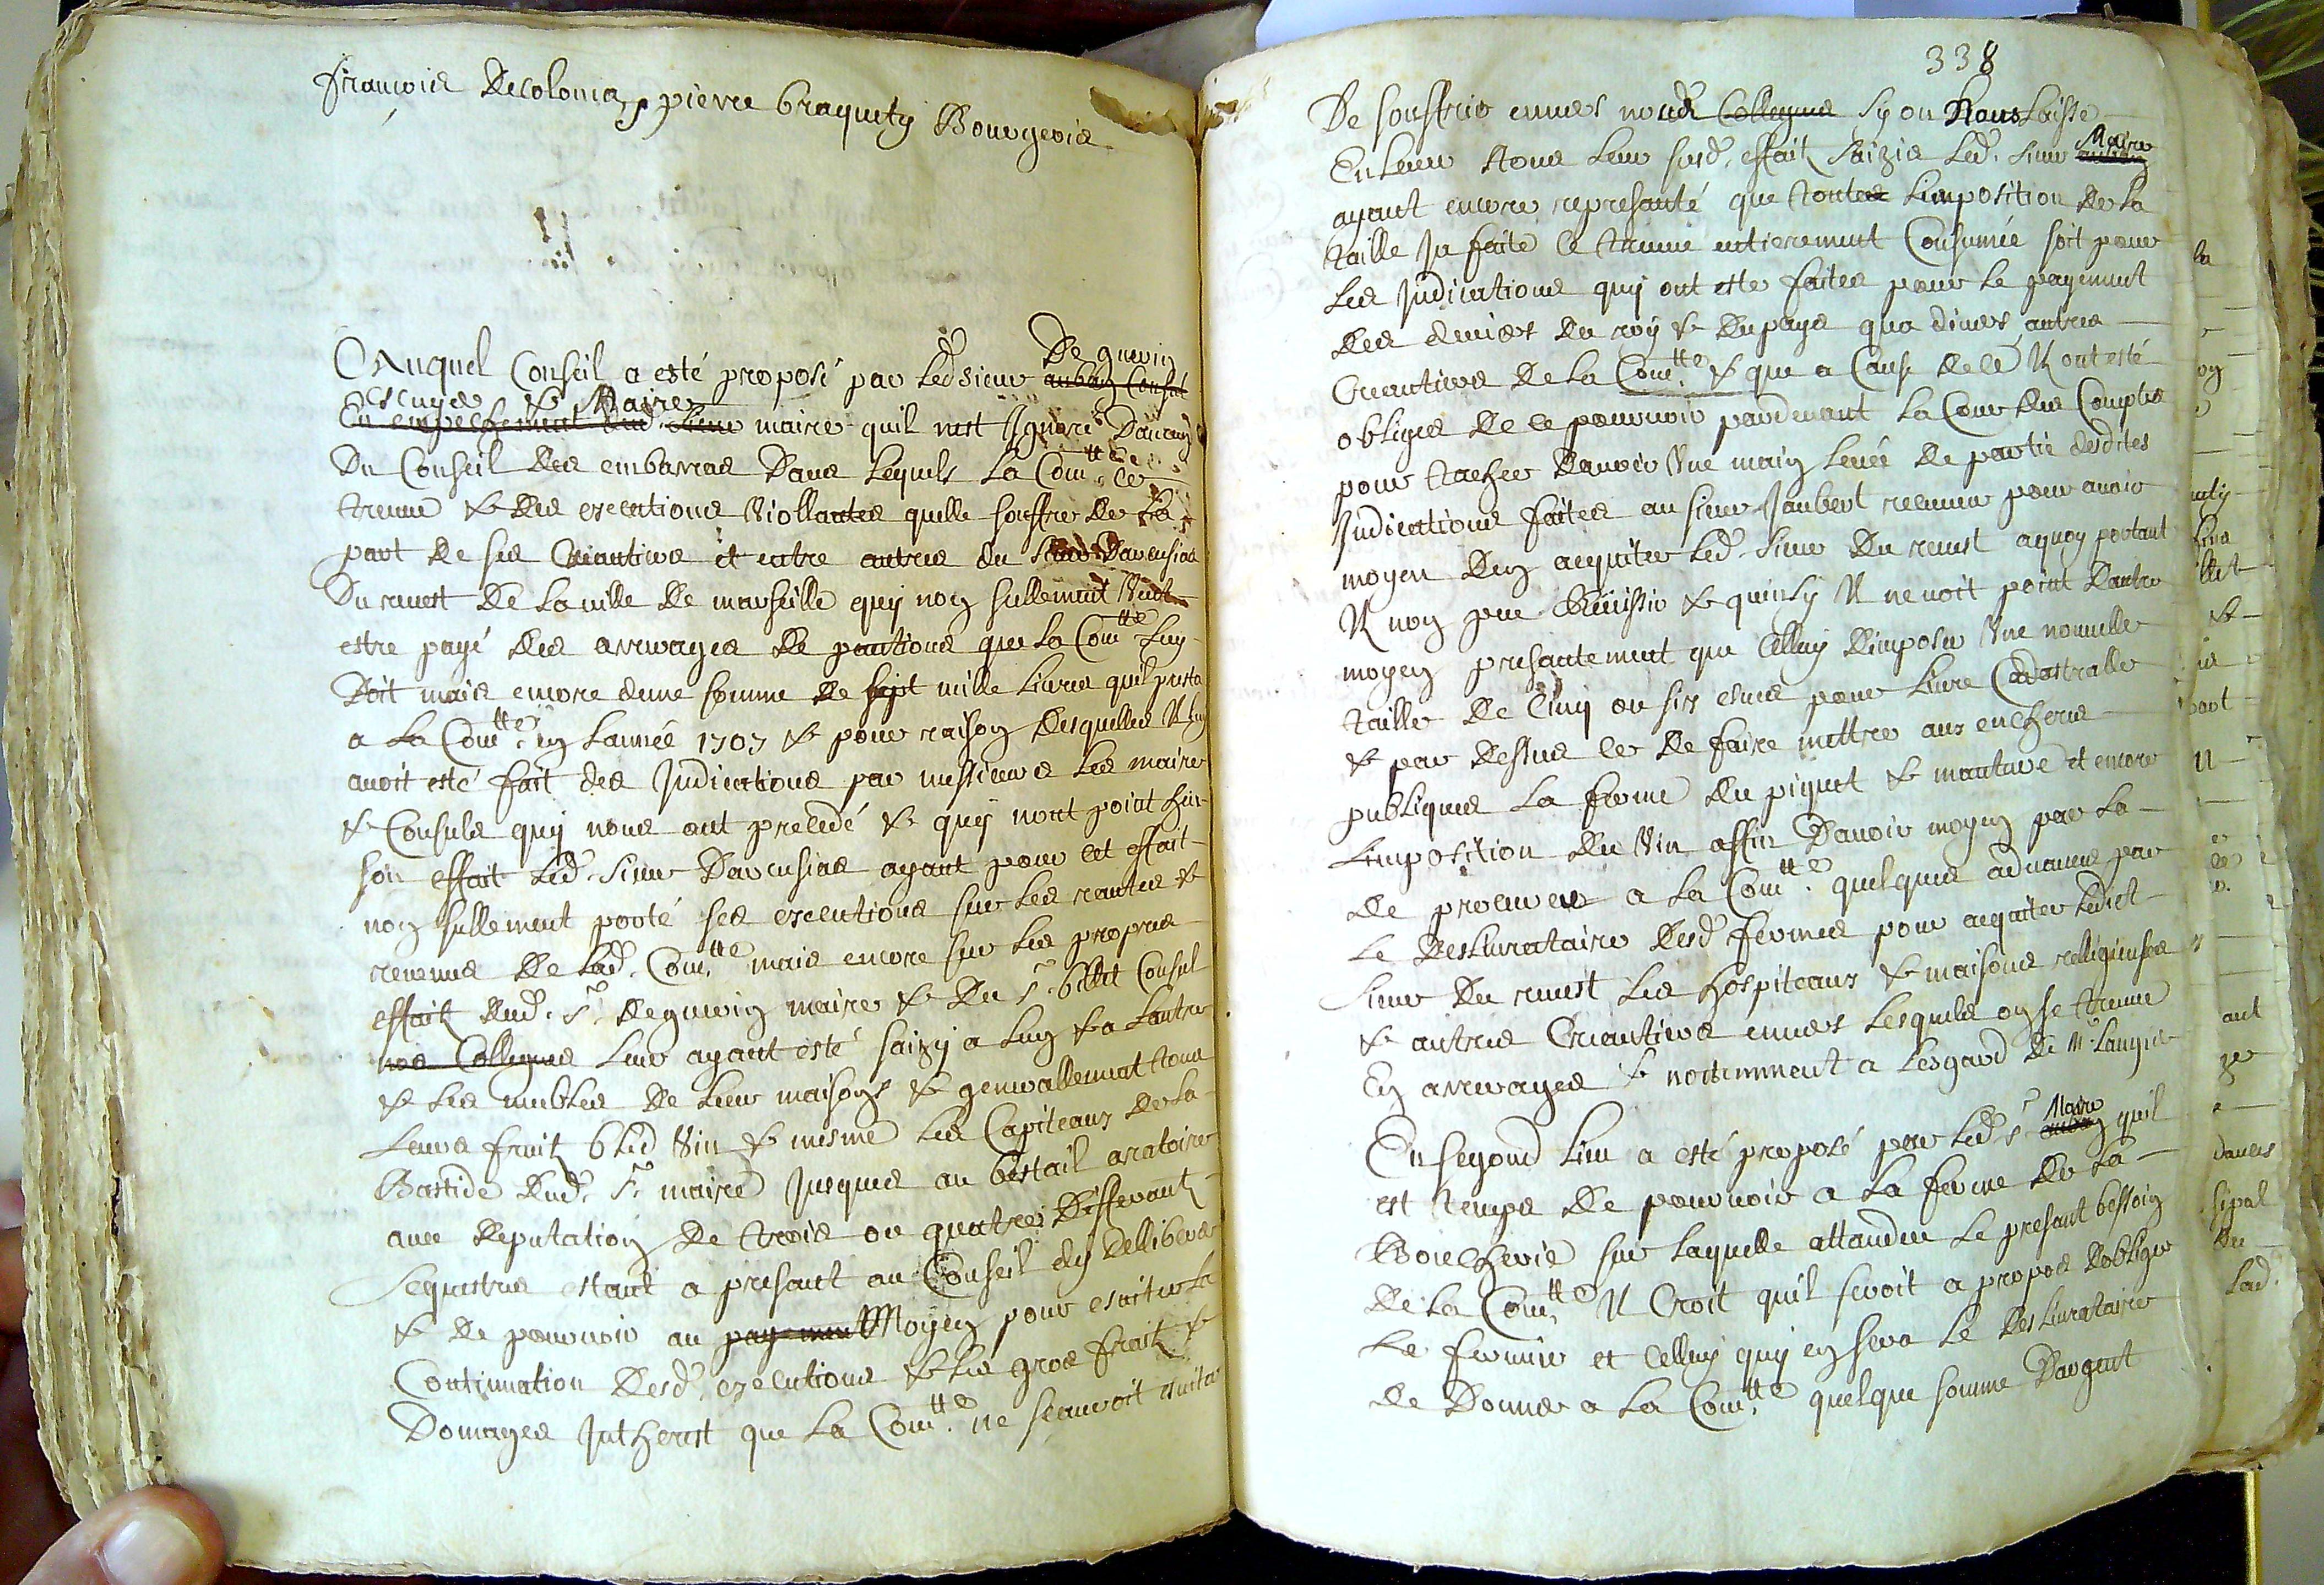 francois Decolonia, pierre braquety Bourgeois
Auquel Conseil a esté proposé par led sieur aubany Consul De guerin
Escuyer & Maire
En empechement dud. sieur maire quil nest Ignoré Daucun
Du Conseil des embarras Dans lequels la Com.tté ce
treuve & des executions Viollantes quelle souffre de la
part de ses Creantiers et entre autres du sieur Darcusias
Du revest De la ville de marseille quy non sullement Veut
estre payé des arreyrages de pantions que la Com.tté luy
Doit mais encore dune somme de sept mille livres quil presta
a la Com.tté en lannée 1707 & pour raison desquelles Il luy
avoit esté fait des Indications par messieurs les maire
& Consuls quy nous ont precedé & quy nont point heu
son effait led. sieur Darcusias ayant pour cet effait
non sullement porté ses executions sur les rantes &
revenus de lad. Com.tté mais encore sur les propres
effaitz dud. sr. deguerin maire & du sr. billet Consul
nos Collegues leur ayant esté saizy a luy & a lautre
& les mubles de leur maisons & generallement tous
leurs fruitz bled Vin & mesme les Capiteaux de la
Bastide dud. sr. maire Jusques au bestail aratoire
avec deputation de trois ou quatre Differantz
sequestres estant a presant au Conseil dy Delliberer
& de pourvoir au payement Moyen pour esviter la
Continuation desd. executions & les gros fraitz &
Domages Intherest que la Com.tté ne scauroit eviter
338
De souffrir envers nosdz Collegues sy on Nous laisse
En leur tous leur susd. effaitz saizis led. sieur aubany Maire
ayant encore represanté que toutes limposition de la
taille Ja faite ce treuve entierement Consumée soit pour
les Indications quy ont este faites pour le payement
des deniers du roy & du pays qua divers autres
Creantiers de la Com.tté & que a Cause de ce Il ont esté
obliges de ce pourvoir pardevant la Cour des Comptes
pour tacher davoir Une main levée de partie desdites
Indications faites au sieur Jaubert receveur pour avoir
moyen den acquiter led. sieur du revest aquoy portant
Il non peu Reüissir & quinsy Il ne voit point Dautre
moyen presantement que Celluy dimposer Une nouvelle
taille de Cinq ou six escus pour livre Cadastralle
& par dessus ce de faire mettre aux encheres
publiques la ferme du piquet & mouture et encore
Limposition du Vin affin Davoir moyen par la
de procurer a la Com.tté quelques advances par
le deslivrataire desd fermes pour acquiter ledict
sieur du revest les hospiteaux & maisons relligieuses
& autres Creantiers envers lesquels on se treuve
En arreyrages & nottemment a lesgard de Mr. Laugier
En segond lieu a esté proposé par led sr aubany Maire quil
est temps de pourvoir a la ferme de la
Boucherie sur laquelle attandeu le presant bessoin
de la Com.tté Il Croit quil seroit a propos dobliger
le fermier et Celluy quy en sera le deslivrataire
de Donner a la Com.tté quelque somme Dargent